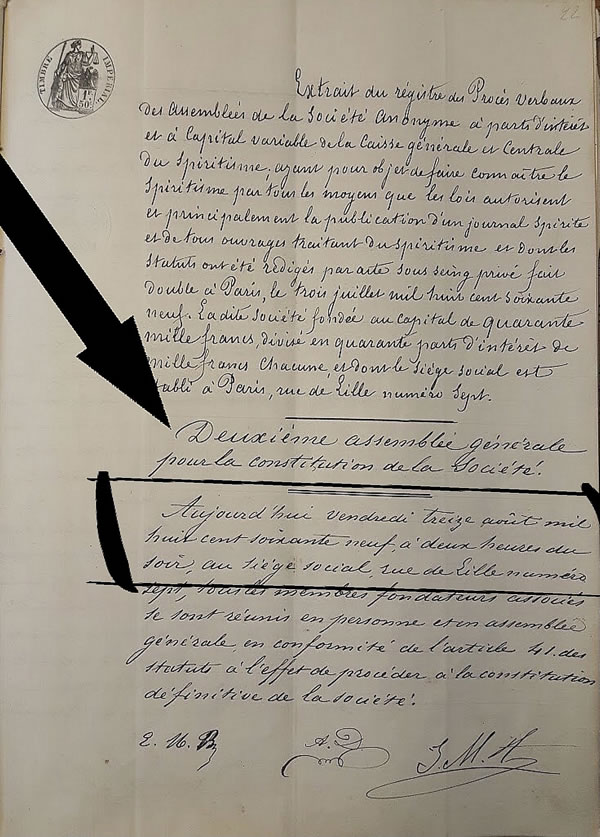 22
TIMBRE IMPÉRIAL
1F
50C
Extrait du régistre des Procès Verbaux
des Assemblées de la Société Anonyme à parts d'intérêt
et à Capital variable de la Caisse générale et Centrale
du Spiritisme, ayant pour objet de faire connaître le
Spiritisme par tous les moyens que les lois autorisent
et principalement la publication d'un journal Spirite
et de tous ouvrages traitant du Spiritisme et dont les
Statuts ont été rédigés par acte sous seing privé fait
double à Paris, le trois juillet mil huit cent soixante
neuf. La dite Société fondée au capital de quarante
mille francs, divisé en quarante parts d'intérêt de
mille francs chacune et dont le Siège social est
établi à Paris, rue de Lille numéro Sept.
Deuxième assemblée générale
pour la constitution de la Société.
Aujourd'hui vendredi treize août mil
huit cent soixante neuf, à deux heures du
soir, au siège social, rue de Lille numéro
sept, tous les membres fondateurs associés
se sont réunis en personne et en assemblée
générale, en conformité de l'article 41. des
statuts à l'effet de procéder à la constitution
définitive de la société.
A. D